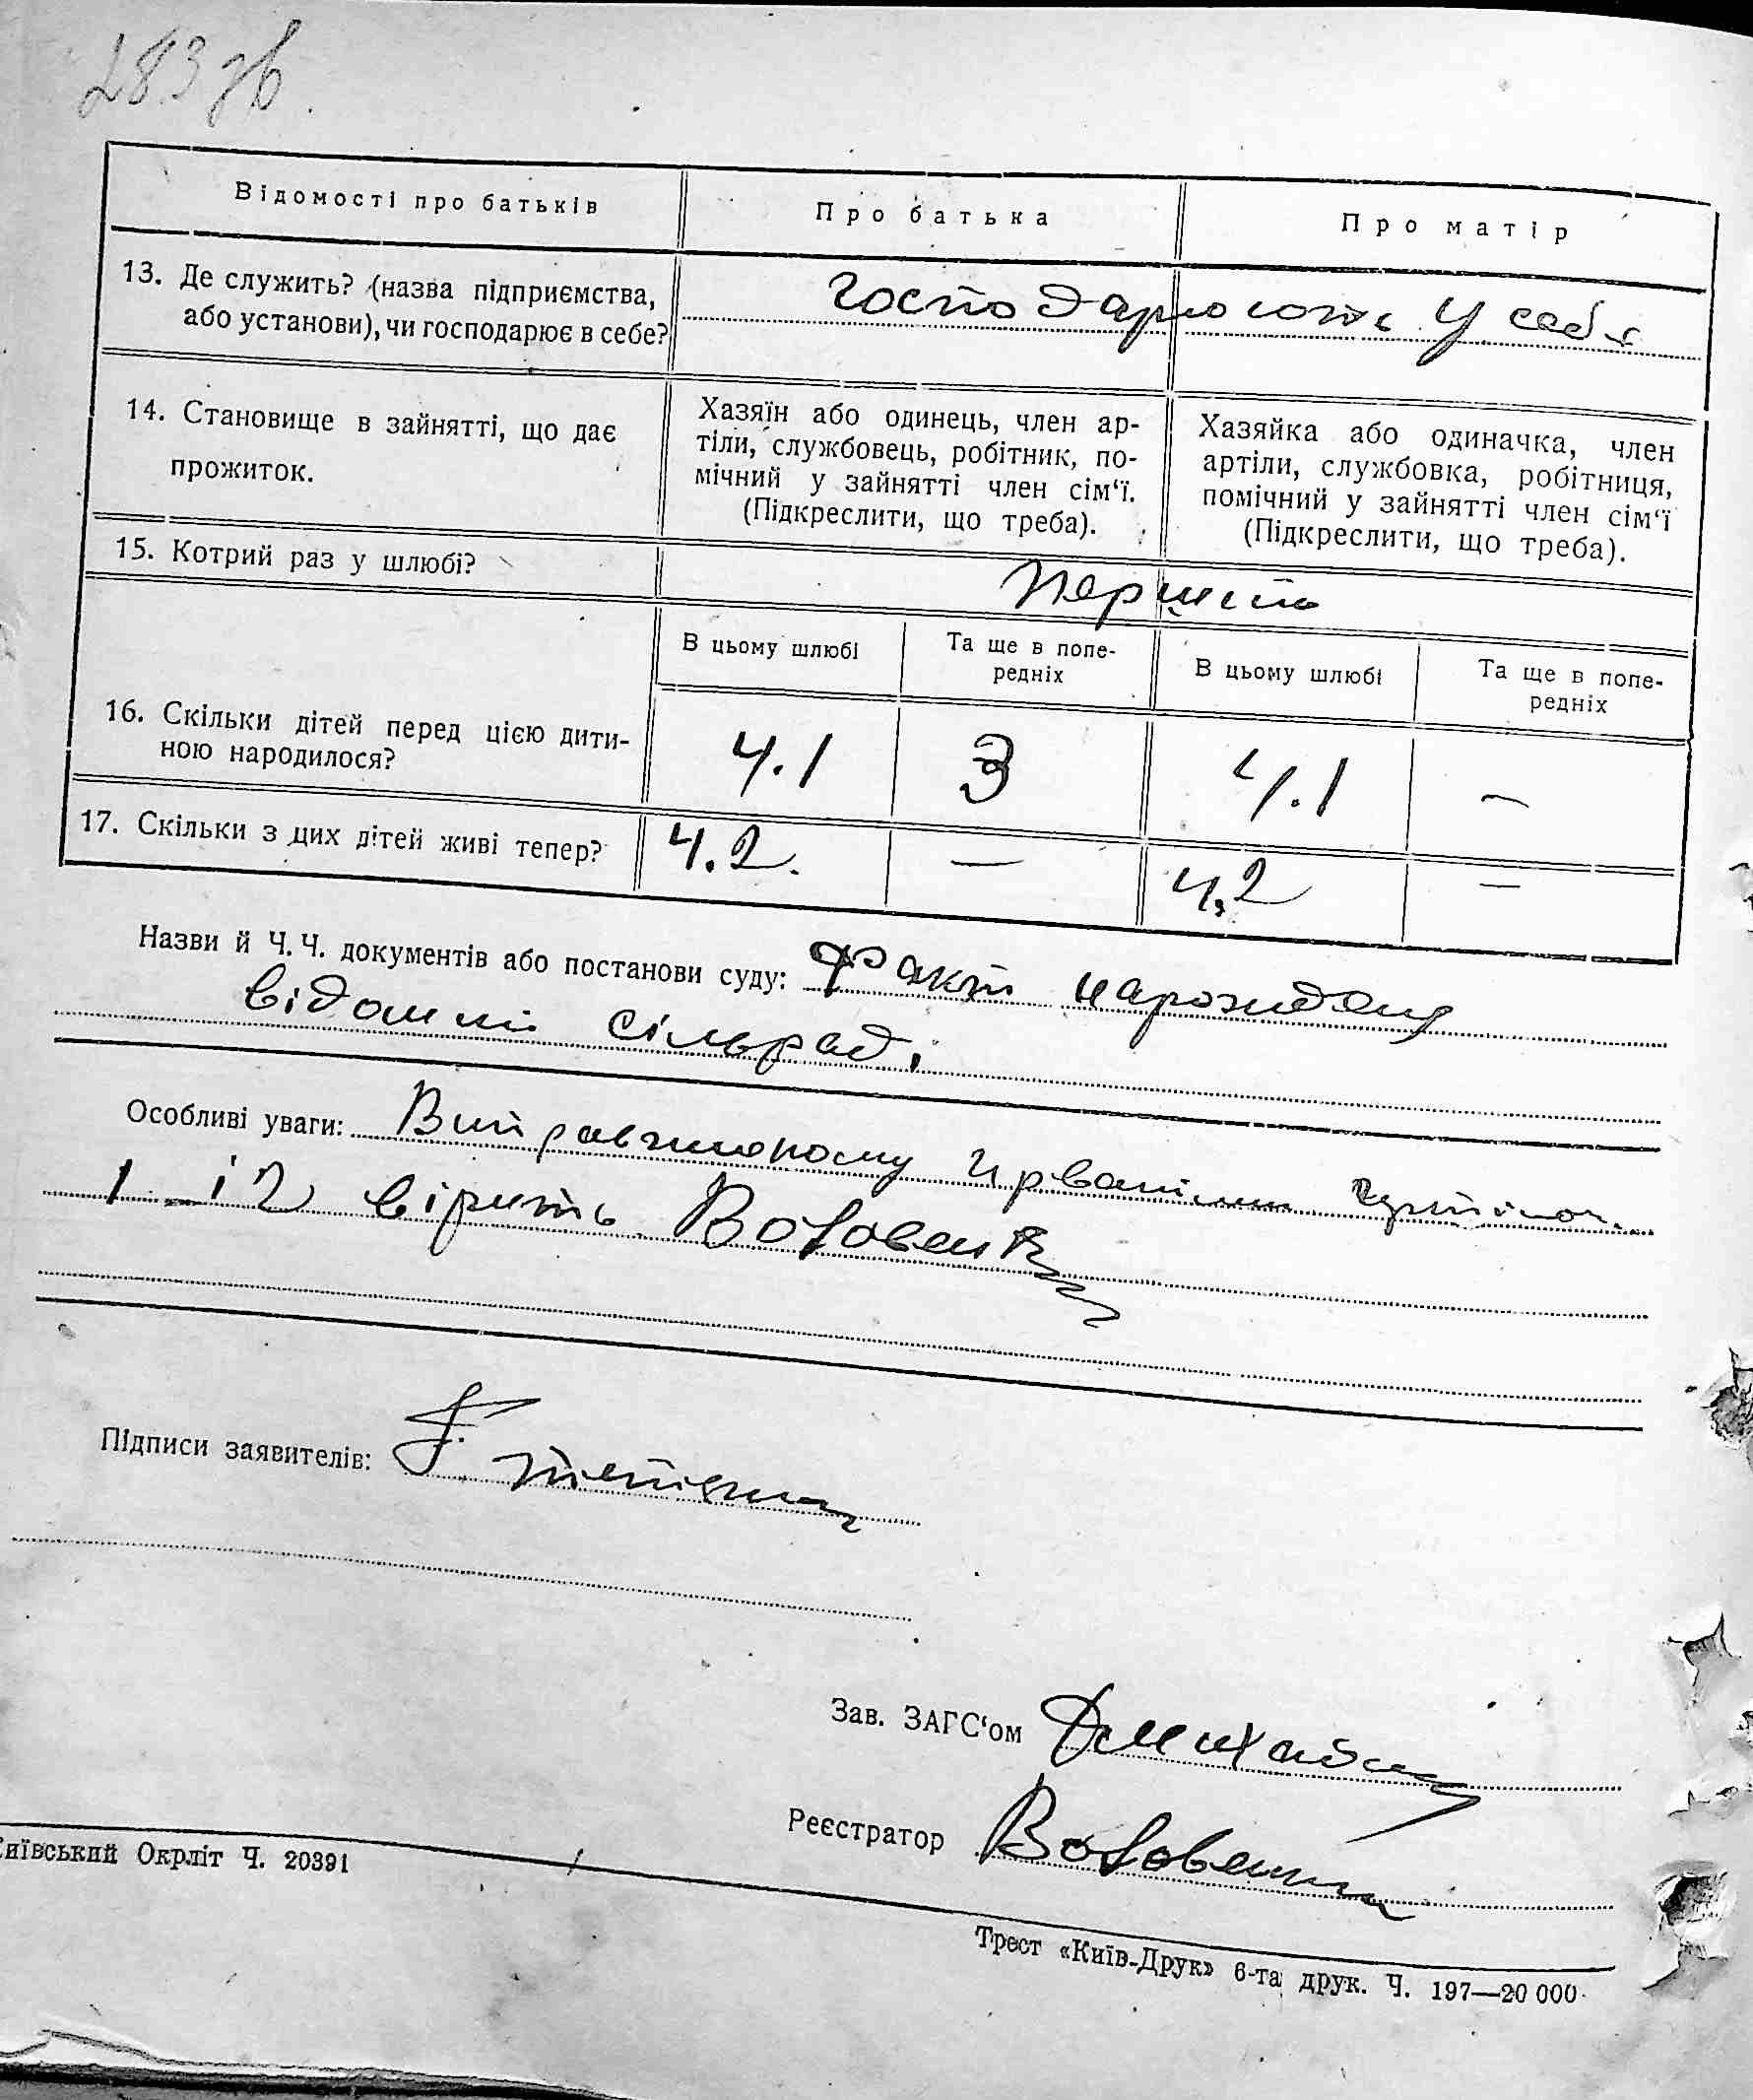 283 зв.
Відомості про батьків
Про батька
Про матір
13. Де служить? (назва підприємства,
або установи), чи господарює в себе?
Господарюють у себе
14. Становище в зайнятті, що дає
прожиток.
Хазяїн або одинець, член ар-
тіли, службовець, робітник, по-
мічний у зайнятті член сім‘ї.
(Підкреслити, що треба).
Хазяйка або одиначка, член
артіли, службовка, робітниця,
помічний у зайнятті член сім‘ї
(Підкреслити, що треба).
15. Котрий раз у шлюбі?
В цьому шлюбі
Та ще в попе-
редніх
В цьому шлюбі
Та ще в попе-
редніх
16. Скільки дітей перед цією дити-
ною народилося?
Ч.1
3
Ч.1
—
17. Скільки з цих дітей живі тепер?
Ч.2.
—
Ч.2
—
Назви й Ч.Ч. документів або постанови суду: Факт
відомий сільраді
Особливі уваги:
1 і 2 вірить
Підписи заявителів:
Зав. ЗАГС‘ом
Реєстратор
Київський Окрліт Ч. 20391
Трест «Київ-Друк» 6-та друк. Ч. 197—20 000